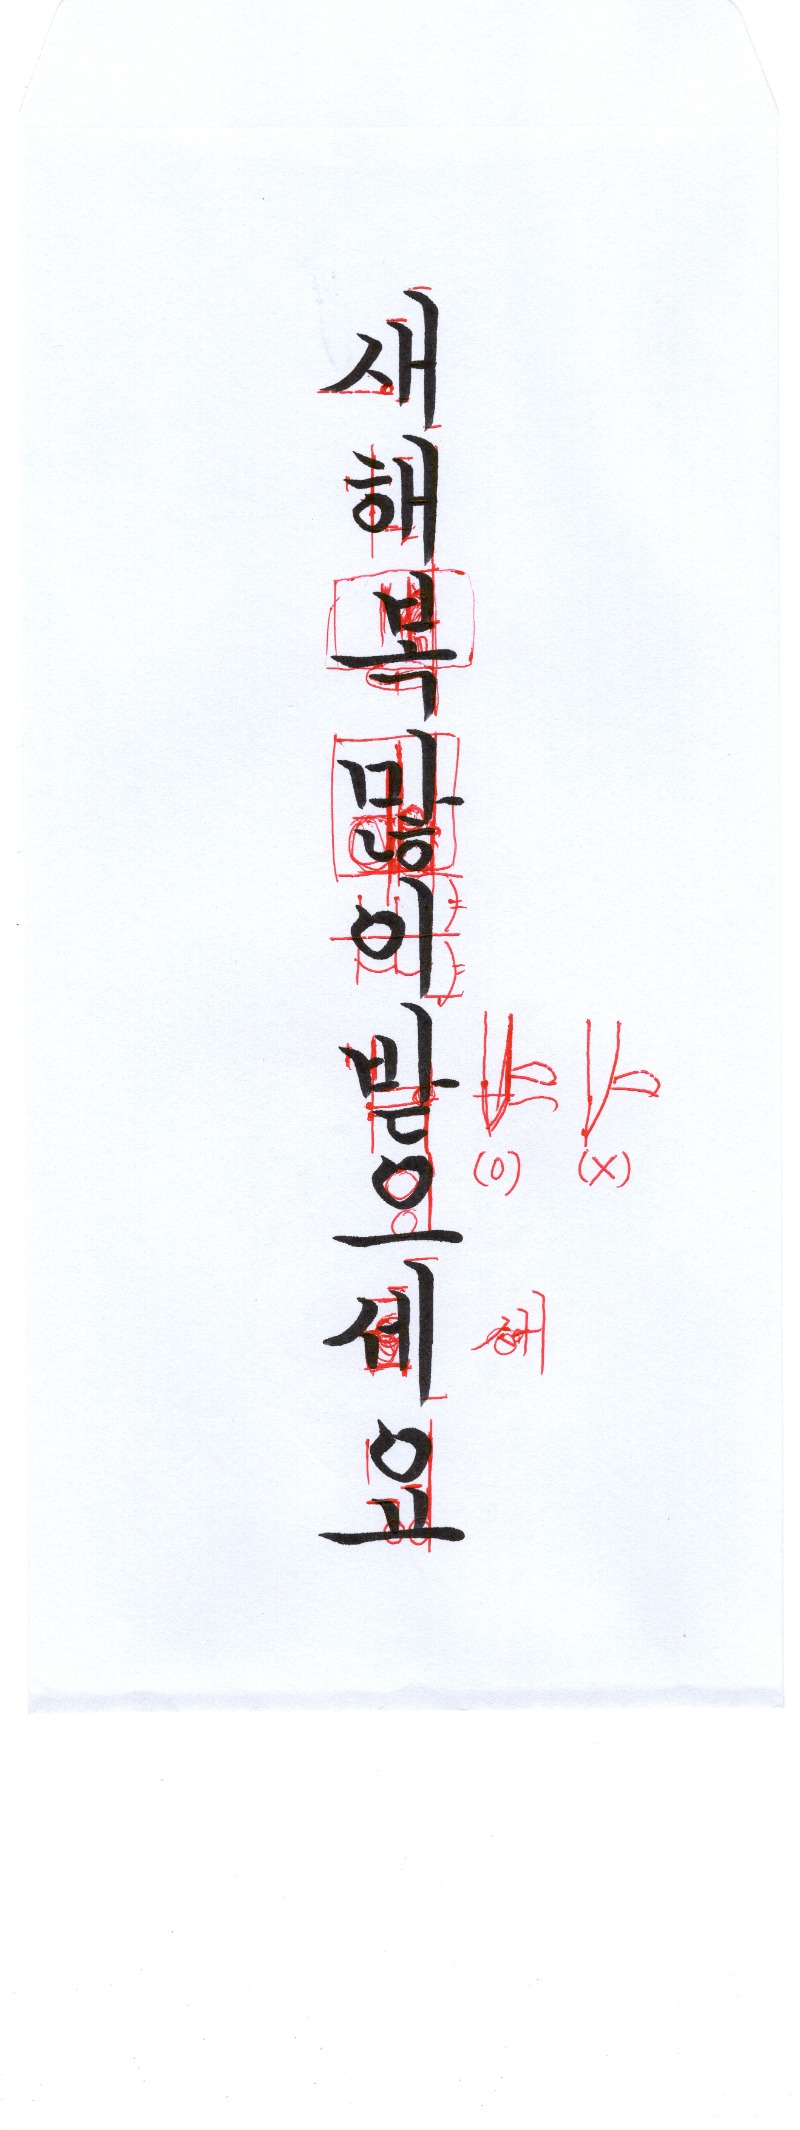 새해복많이받으세요
(O) (X)
해